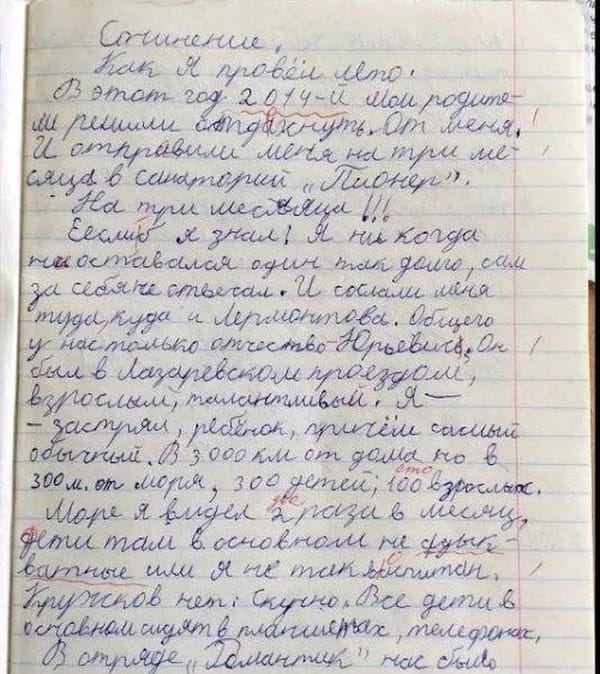 Сочинение.
Как я провёл лето.
В этот год 2014-й мои родите-
ли решили отдахнуть. От меня.
И отправили меня на три ме-
сяца в санаторий „Пионер".
На три месяца!!!
Еслиб я знал! Я ни когда
не оставался один так долго, сам
за себя не отвечал. И сослали меня
туда, куда и Лермонтова. Общего
у нас только отчество - Юрьевич. Он
был в Лазаревском проездом,
взрослый, талантливый. Я —
- застрял, ребёнок, причём самый
обычный. В 3000 км от дома но в
сто
300 м. от моря, 300 детей, 100 взрослых.
две
Море я видел 2 раза в месяц,
дети там в основном не адык-
ватные или я не так воспитан.
Кружков нет. Скучно. Все дети в
основном сидят в планшетах, телефонах.
В отряде „Романтик" нас было